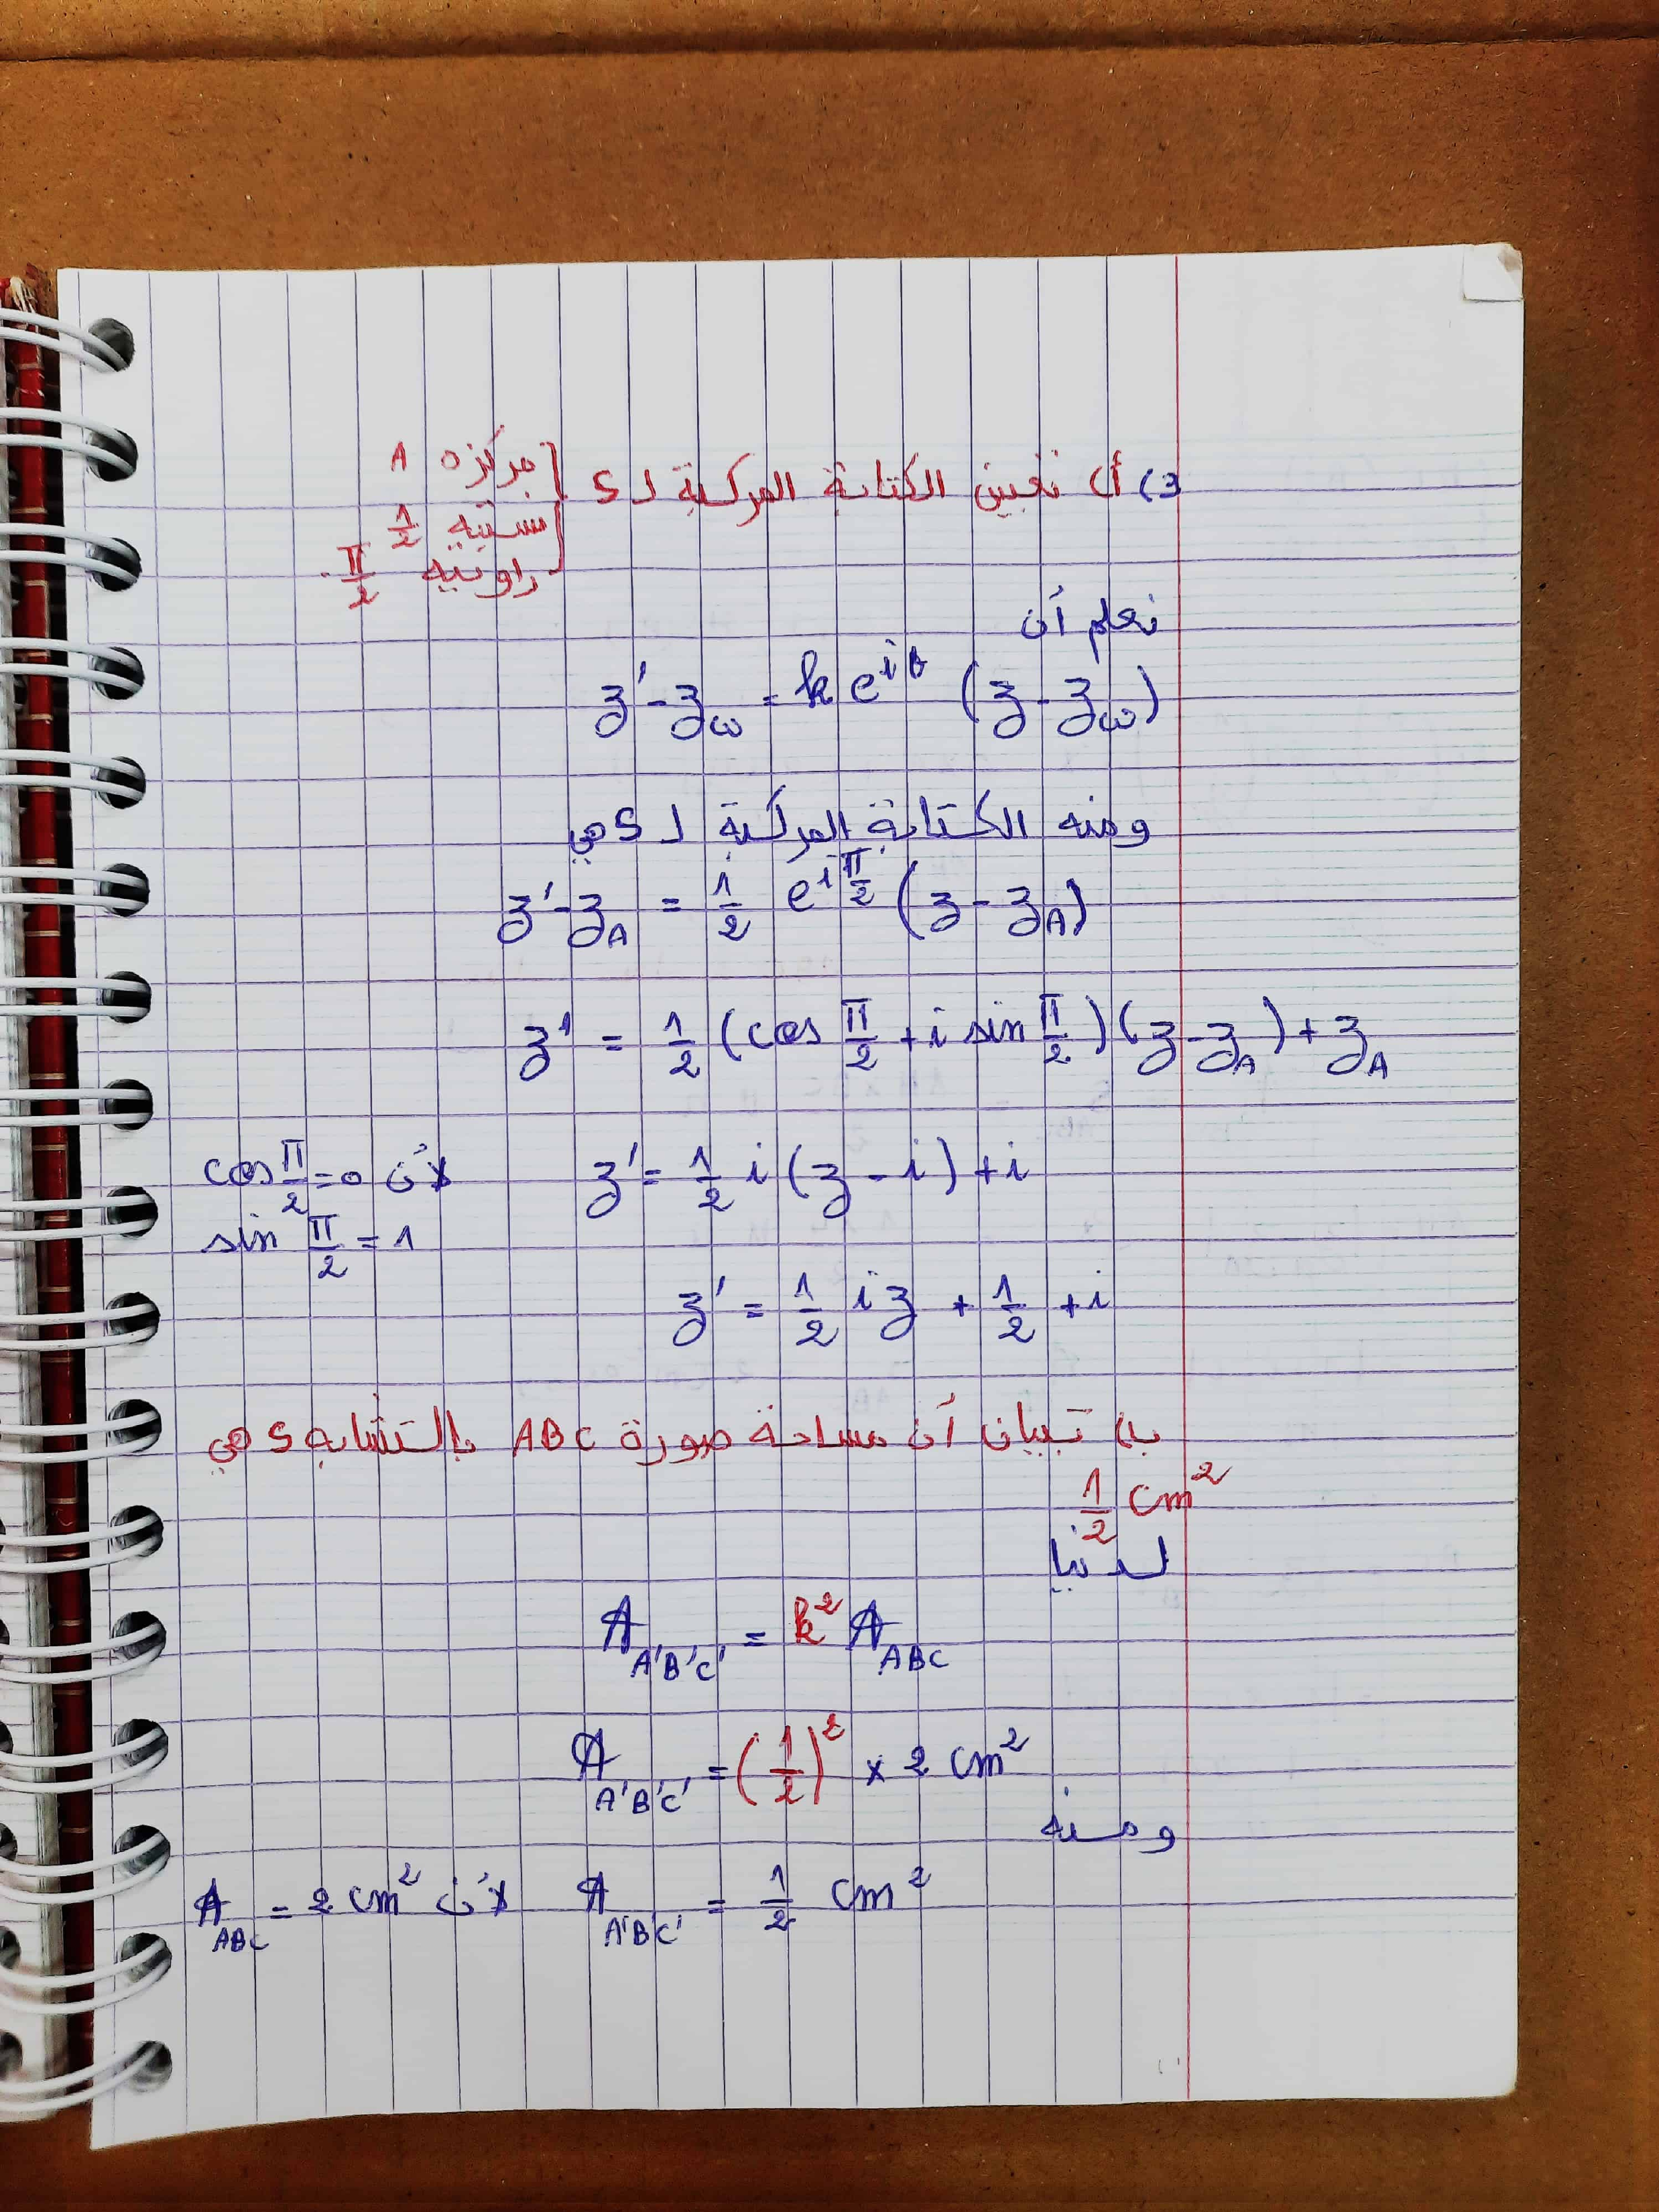 3) أ) تعيين الكتابة المركبة لـ S { مركزه A
نسبته 1/2
زاويته π/2 .
نعلم أن
z' - z_ω = k e^{iθ} (z - z_ω)
ومنه الكتابة المركبة لـ S هي
z' - z_A = 1/2 e^{iπ/2} (z - z_A)
z' = 1/2 (cos π/2 + i sin π/2) (z - z_A) + z_A
z' = 1/2 i (z - i) + i لأن cos π/2 = 0
sin π/2 = 1
z' = 1/2 i z + 1/2 + i
ب) تبيان أن مساحة صورة ABC بالتشابه S هي
1/2 cm²
لدينا
A_{A'B'C'} = k² A_{ABC}
A_{A'B'C'} = (1/2)² × 2 cm²
ومنه
A_{A'B'C'} = 1/2 cm² لأن A_{ABC} = 2 cm²